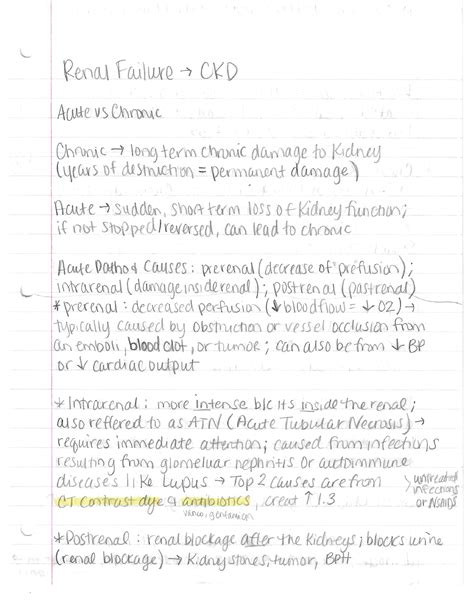 Renal Failure → CKD
Acute vs Chronic
Chronic → long term chronic damage to Kidney
(years of destruction = permanent damage)
Acute → sudden, short term loss of Kidney function;
if not stopped/reversed, can lead to chronic
Acute Patho & Causes: prerenal (decrease of prefusion);
intrarenal (damage inside renal); postrenal (past renal)
* prerenal: decreased perfusion (↓ bloodflow = ↓ O2) →
typically caused by obstruction or vessel occlusion from
an emboli, blood clot, or tumor; can also be from ↓ BP
or ↓ cardiac output
* Intrarenal: more intense b/c its inside the renal;
also reffered to as ATN (Acute Tubular Necrosis) →
requires immediate attention; caused from infections
resulting from glomeluar nephritis or autoimmune
diseases like Lupus → Top 2 causes are from
untreated
infections
or NSAIDS
CT contrast dye & antibiotics, creat ↑ 1.3
vanco; gentamicin
* Postrenal: renal blockage after the Kidneys; blocks urine
(renal blockage) → Kidney stones, tumor, BPH